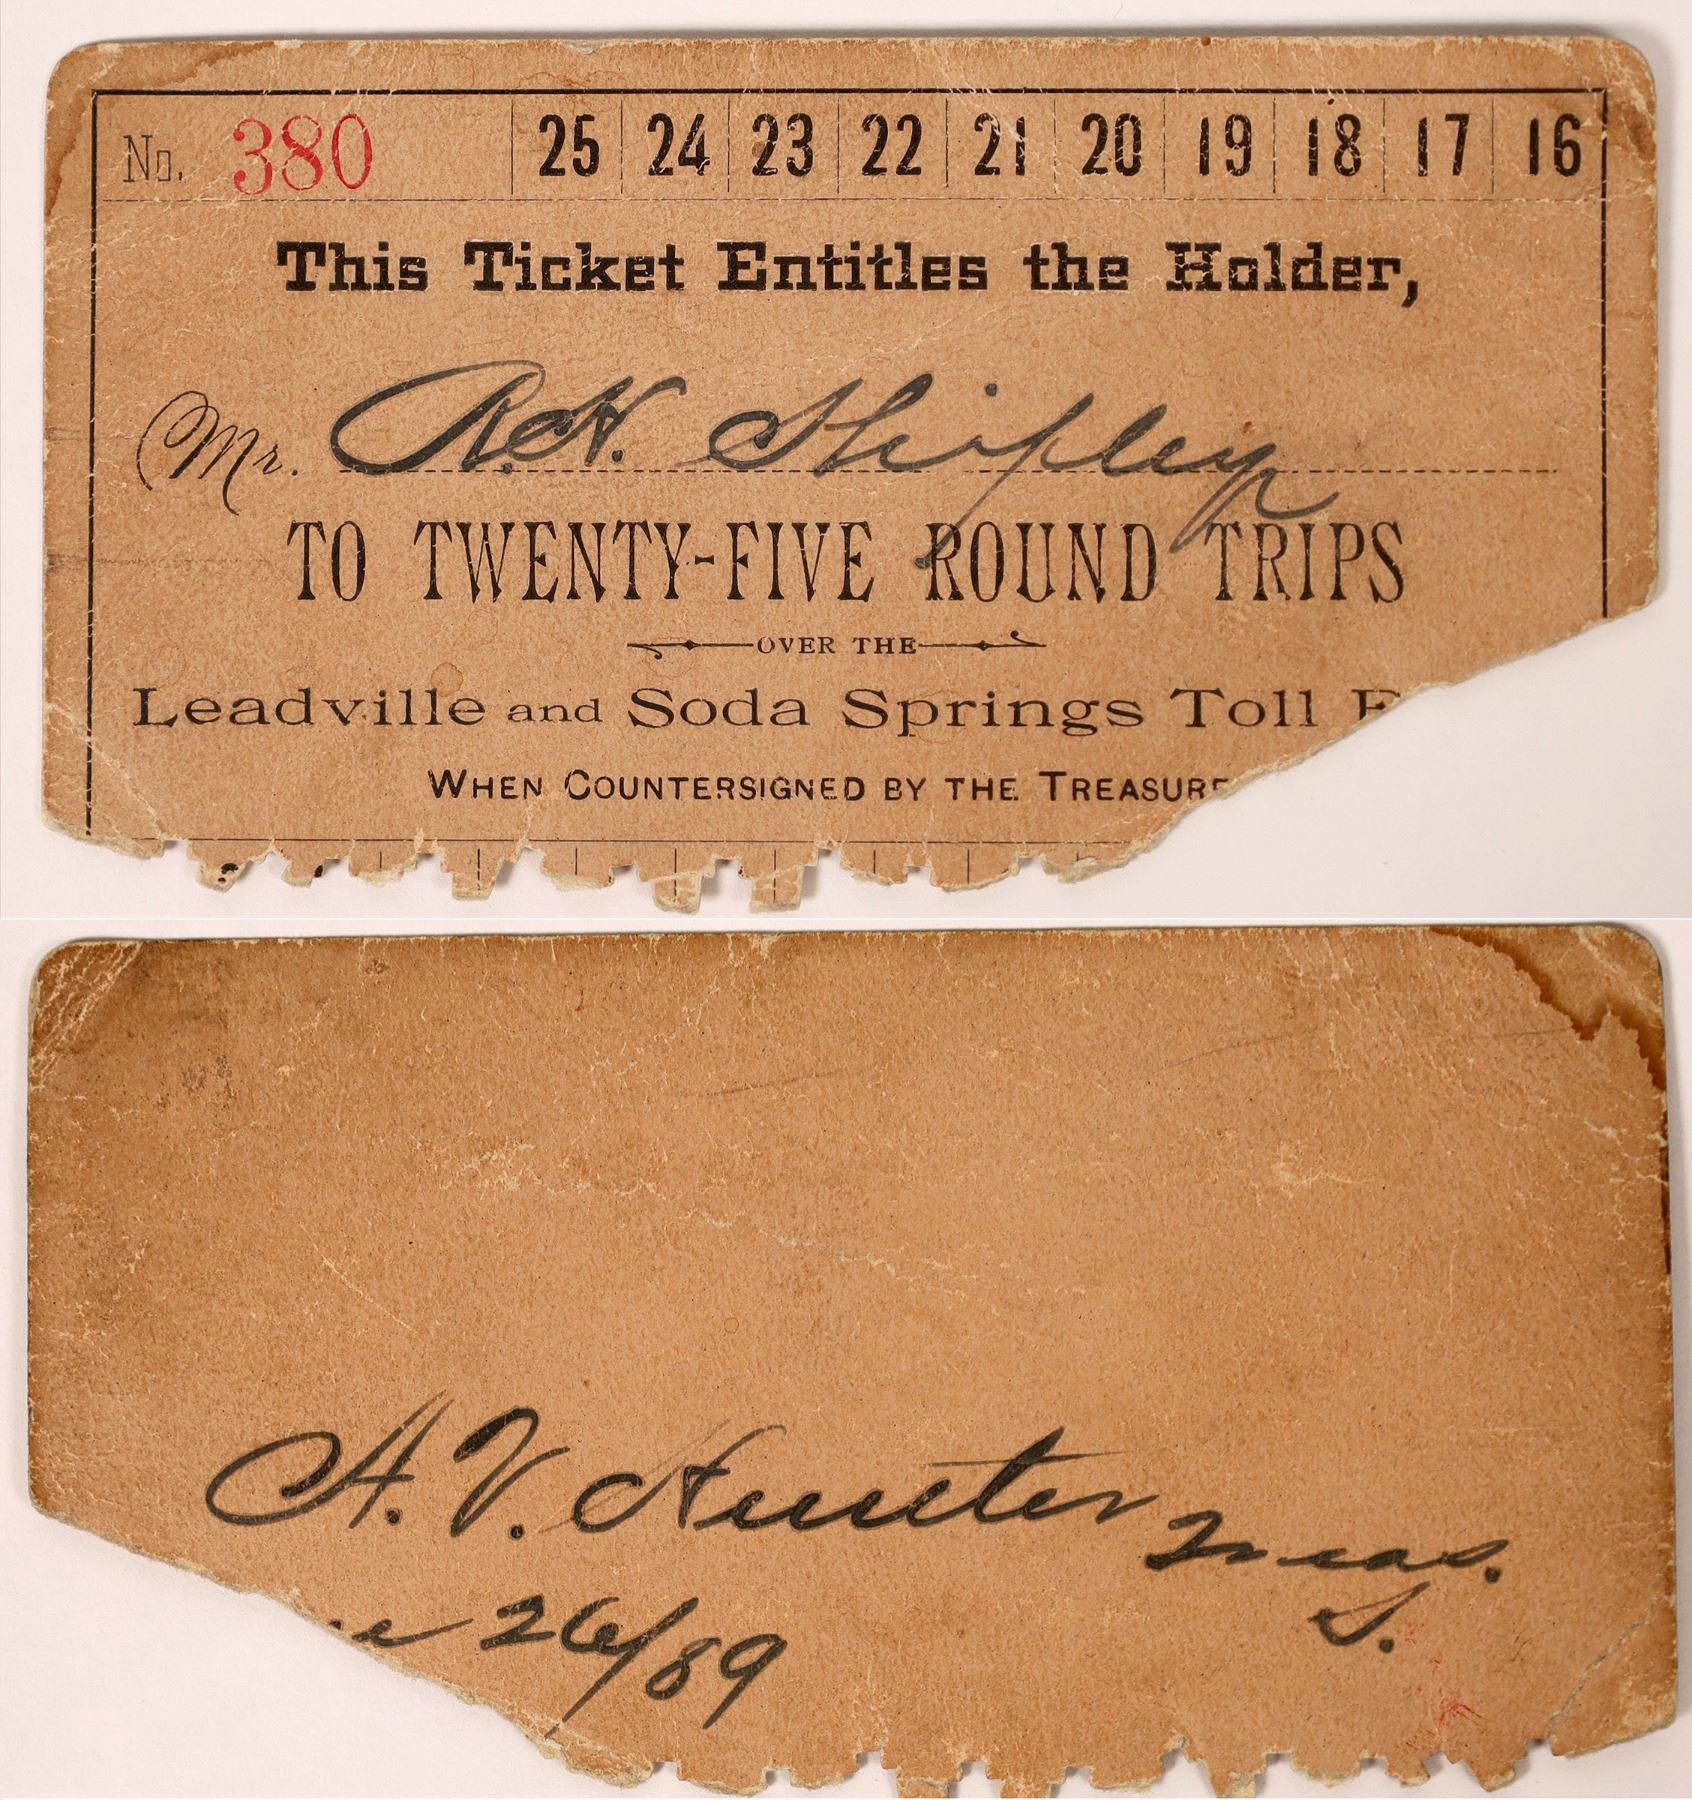 No. 380 25 24 23 22 21 20 19 18 17 16
This Ticket Entitles the Holder,
Mr. R.H. Shipley
TO TWENTY-FIVE ROUND TRIPS
OVER THE
Leadville and Soda Springs Toll
WHEN COUNTERSIGNED BY THE TREASURE
A. V. Hunter Treas.
26/89